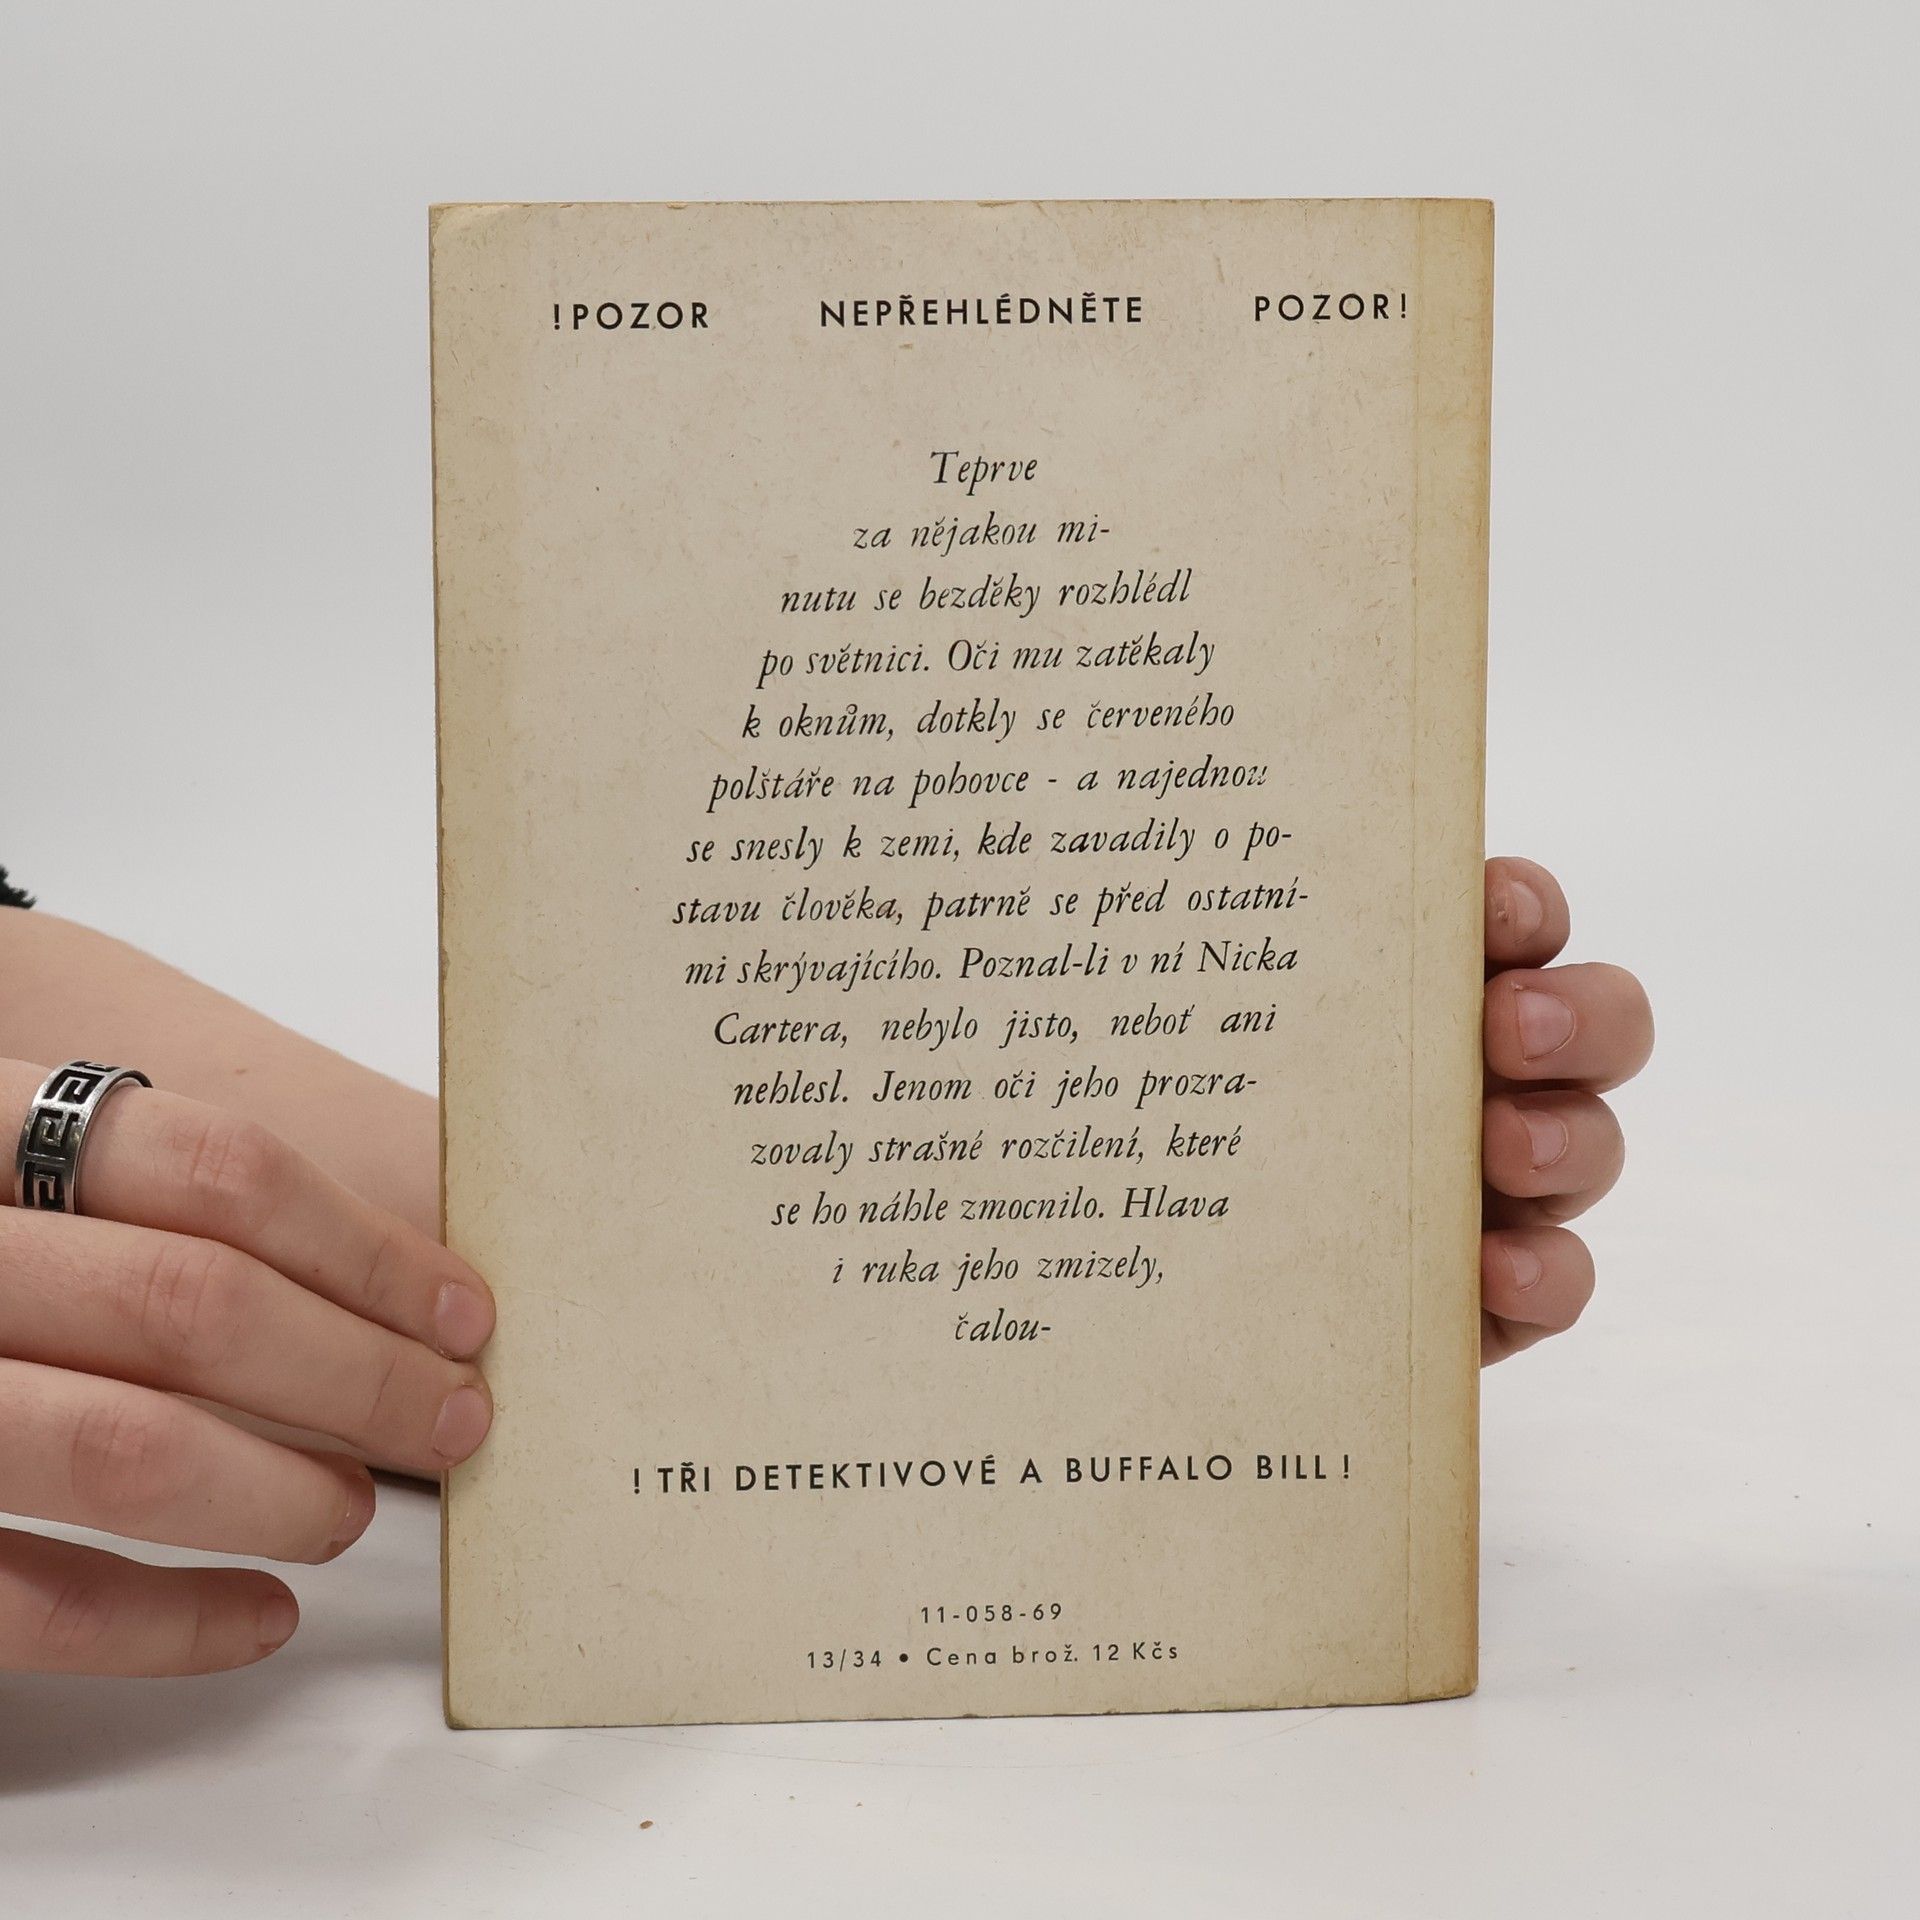 ! POZOR NEPŘEHLÉDNĚTE POZOR !
Teprve
za nějakou mi-
nutu se bezděky rozhlédl
po světnici. Oči mu zatěkaly
k oknům, dotkly se červeného
polštáře na pohovce - a najednou
se snesly k zemi, kde zavadily o po-
stavu člověka, patrně se před ostatní-
mi skrývajícího. Poznal-li v ní Nicka
Cartera, nebylo jisto, neboť ani
nehlesl. Jenom oči jeho prozra-
zovaly strašné rozčilení, které
se ho náhle zmocnilo. Hlava
i ruka jeho zmizely,
čalou-
! TŘI DETEKTIVOVÉ A BUFFALO BILL !
11-058-69
13/34 • Cena brož. 12 Kčs